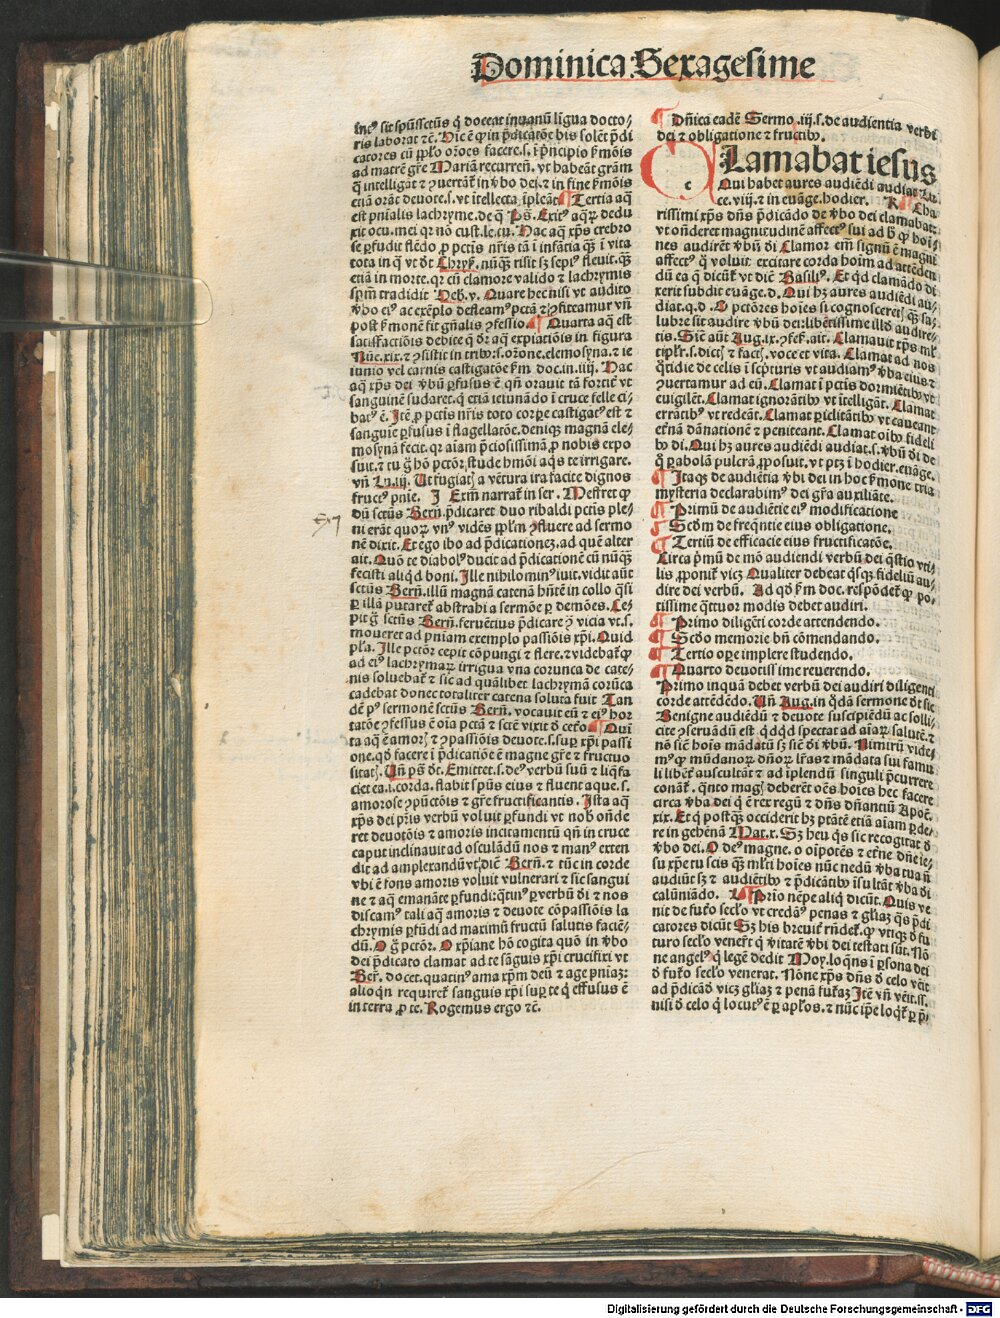 Dominica Sexagesime
int⁹ sit spūssctūs q̇ doceat inuanū lĩgua docto⸗
ris laborat ⁊c̄. Hic ē ꝙ in p̄dicatōe his solēt p̄di
catores cū pp̄lo or̄oes facere.s. ī p̄ncipio ẜmōis
ad matrē gr̄e Mariā recurrēn̄. vt habeāt grām
q̄ intelligāt ⁊ ꝯuertāt̄ in v̄bo dei.⁊ in fine ẜmōis
etiā orāt deuote.s.vt ītellecta īpleāt¶ Tertia aq̄
est pnīalis lachryme.de q̄ Ps. Exit⁹ aqꝝ dedu
xit ocu.mei qꝛ nō cust.le.tu. Hac aq̄ xp̄s crebro
se ꝑfudit flēdo ꝓ pctīs nr̄is tā ī infātia q̄ꝫ ī vita
tota in q̄ vt dt̄ Chryẜ. nūqꝫ risit sꝫ sepi⁹ fleuit.qꝫ
etiā in morte.qꝛ cū clamore valido ⁊ lachrymis
sp̄m tradidit Heb.v. Quare hec nisi vt audito
v̄bo ei⁹ ac exēplo defleam⁹ pctā ⁊ ꝯfiteamur vn̄
post ẜmonē fit gn̄alis ꝯfessio.¶ Quarta aq̄ est
satisfactiōis debite q̄ dr̄ aq̄ expiatiōis in figura
Nūe.xix.⁊ ꝯsistit in tribꝰ.s.or̄one.elemosyna.⁊ ie
iunio vel carnis castigatōe ẜm doc.in.iiij. Hac
aq̄ xp̄s dei v̄bū ꝑfusus ē qn̄ orauit tā fortit̄ vt
sanguinē sudaret.q̄ etiā ieiunādo ī cruce felle ci⸗
bat⁹ ē. Itē ꝓ pctīs nr̄is toto corꝑe castigat⁹ est ⁊
sanguīe ꝑfusus ī flagellatōe.deniqꝫ magnā ele⸗
mosynā fecit.qꝛ aīam p̄ciosissimā ꝓ nobis expo
suit.⁊ tu g̈ hō pctōr.stude hmōi aq̄s te irrigare.
vn̄ Lu.iij. Ut fugiatꝭ a vētura ira facite dignos
fruct⁹ pnīe. J Exm̄ narrat̄ in ser. Meffret ꝙ
dū sctūs Bern̄.p̄dicaret duo ribaldi pctīs ple⸗
ni erāt quoꝝ vn⁹ vidēs pp̄lm ꝯfluere ad sermo
nē dixit. Et ego ibo ad p̄dicationeꝫ.ad quē alter
ait. Quō te diabol⁹ ducit ad p̄dicationē cū nūqꝫ
fecisti aliqd boni. Ille nihilomin⁹ iuit.vidit aūt
sctūs Bern̄.illū magnā catenā hn̄tē in collo q̄si
ꝑ illā putaret̄ abstrahi a sermōe ꝑ demōes. Ce⸗
pit g̈ sctūs Bern̄.feruētius p̄dicare ꝯ vicia vt.s.
moueret ad pniam exemplo passiōis xp̄i. Quid
pl̄a. Ille pctōr cepit cōpungi ⁊ flere.⁊ videbat̄ꝙ
ad ei⁹ lachrymaꝝ irrigua vna corūca de cate⸗
nis soluebat̄ ⁊ sic ad quālibet lachrymā corūca
cadebat donec totaliter catena soluta fuit Tan
dē p⁹ sermonē sctūs Bern̄. vocauit eū ⁊ ei⁹ hor
tatōe ꝯfessus ē oīa pctā ⁊ sctē vixit d̓ ceto.¶ Qui
ta aq̄ ē amorꝭ ⁊ ꝯpassiōis deuote.s.suꝑ xp̄i passi
one.qd̓ facere ī p̄dicatiōe ē magne gr̄e ⁊ fructuo
sitatꝭ. Un̄ ps̄ dt̄. Emittet.s.de⁹ verbū suū ⁊ liq̄fa
ciet ea.i.corda.flabit sp̄us eius ⁊ fluent aque.s.
amorose ꝯpūctōis ⁊ gr̄e fructificantis. Ista aq̄
xp̄s dei p̄ris verbū voluit ꝑfundi vt nob̄ onde
ret deuotōis ⁊ amoris incitamentū qn̄ in cruce
caput inclinauit ad osculādū nos ⁊ man⁹ exten
dit ad amplexandū vt diē Bern̄.⁊ tūc in corde
vbi ē fons amoris voluit vulnerari ⁊ sic sangui
ne ⁊ aq̄ emanāte ꝑfundi:q̄tin⁹ ꝑ verbū d̄i ⁊ nos
discam⁹ tali aq̄ amoris ⁊ deuote cōpassiōis la
chrymis ꝑfūdi ad maximū fructū salutis faciē⸗
dū. O g̈ pctōr. O xp̄iane hō cogita quō in v̄bo
dei p̄dicato clamat ad te sāguis xp̄i crucifixi vt
Ber̄. docet.quatin⁹ ama xp̄m deū ⁊ age pniaꝫ:
alioqn̄ requiret̄ sanguis xp̄i suꝑ te q̇ effusus ē
in terra ꝓ te. Rogemus ergo ⁊c̄.
¶ Dn̄ica eadē Sermo.iij.s.de audientia verbi
dei ⁊ obligatione ⁊ fructibꝰ.
CLamabat iesus
Qui habet aures audiēdi audiat Lu
ce.viij.⁊ in euāge.hodier. Cha
rissimi xp̄s dn̄s p̄dicādo de v̄bo dei clamabat:
vt on̄deret magnitudinē affect⁹ sui ad h̄ ꝙ hoī⸗
nes audirēt v̄bū d̄i Clamor em̄ signū ē magni
affect⁹ q̄ voluit excitare corda hoīm ad attēden
dū ea q̄ dicūt̄ vt diē Basili⁹. Et qd̓ clamādo di
xerit subdit euāge.d. Qui hꝫ aures audiēdi au⸗
diat.q.d. O pctōres hoīes si cognosceretꝭ q̄ꝫ sa⸗
lubre sit audire v̄bū dei:libētissime illd̓ audire⸗
tis. Sic̄ aūt Aug.ix.ꝯfeẜ.ait. Clamauit xp̄s ml̄
tiplr̄.s.dictꝭ ⁊ factꝭ.voce et vita. Clamat ad nos
q̄tidie de celis ī scpturis vt audiam⁹ v̄ba eius ⁊
ꝯuertamur ad eū. Clamat ī pctīs dormiētibꝰ vt
euigilēt. Clamat ignorātibꝰ vt ītelligāt. Clamat
errātibꝰ vt redeāt. Clamat ꝑiclitātibꝰ vt caueant
et̄nā dānationē ⁊ peniteant. Clamat oībꝰ fideli
bꝰ di. Qui hꝫ aures audiēdi audiat.s.v̄bū d̄i de
q̊ ꝑabolā pulcrā ꝓposuit.vt ptꝫ ī hodier.euāge.
¶ Itaqꝫ de audiētia v̄bi dei in hoc ẜmone tria
mysteria declarabim⁹ dei gr̄a auxiliāte.
¶ Primū de audiētie ei⁹ modificatione
¶ Scd̓m de freqn̄tie eius obligatione.
¶ Tertiū de efficacie eius fructificatōe.
Circa p̄mū de mō audiendi verbū dei q̄stio vti⸗
lis ꝓponit̄ vicꝫ Qualiter debeat q̄sqꝫ fideliū au⸗
dire dei verbū. Ad qd̓ ẜm doc.respōdet̄ ꝙ po⸗
tissime q̄ttuor modis debet audiri.
¶ Primo diligēti corde attendendo.
¶ Scd̓o memorie bn̄ cōmendando.
¶ Tertio oꝑe implere studendo.
¶ Quarto deuotissime reuerendo.
Primo inquā debet verbū dei audiri diligenti
corde attēdēdo. Un̄ Aug.in q̄dā sermone dt̄ sic
Benigne audiēdū ⁊ deuote suscipiēdū ac solli⸗
cite ꝯseruādū est qd̓qd̓ spectat ad aīaꝝ salutē.⁊
nō sic̄ hoīs mādatū sꝫ sic̄ d̄i v̄bū. Nimirū vide⸗
m⁹ ꝙ mūdanoꝝ dn̄oꝝ lr̄as ⁊ mādata sui famu
li libēt̄ auscultāt ⁊ ad īplendū singuli p̄currere
conāt̄. q̄nto magꝭ deberēt oēs hoīes hec facere
circa v̄ba dei q̇ ē rex regū ⁊ dn̄s dn̄antiū Apoc̄.
xix. Et q̇ postqꝫ occiderit hꝫ ptātē etiā aīam ꝑde⸗
re in gehēnā Mat.x. Sꝫ heu q̄s sic recogitat d̓
v̄bo dei. O de⁹ magne.o oīpotēs ⁊ et̄ne dn̄e ie⸗
su xp̄e tu scis qꝫ ml̄ti hoīes nūc nedū v̄ba tua n̄
audiūt sꝫ ⁊ audiētibꝰ ⁊ p̄dicātibꝰ īsultāt v̄ba d̄i
calūniādo. ¶ Prio nēpe aliq̄ dicūt. Quis ve
nit de fut̄o seclo vt credā⁹ penas ⁊ gl̄iaꝫ q̄s p̄di
catores dicūt Sꝫ his breuit̄ rn̄det̄.ꝙ vtiqꝫ d̓ fu
turo seclo venert̄ q̇ v̄itatē v̄bi dei testati sūt. Nō
ne angel⁹ q̇ legē dedit Moy.loqn̄s ī ꝑsona dei
d̓ fut̄o seclo venerat. Nōne xp̄s dn̄s d̓ celo vēit
ad p̄dicād̓ vicꝫ gl̄iaꝫ ⁊ penā fut̄aꝫ Itē vn̄ vēit.ss.
nisi d̓ celo q̇ locut⁹ ē ꝑ apl̄os.⁊ nūc ip̄e loqt̄ ꝑ p̄⸗
Digitalisierung gefördert durch die Deutsche Forschungsgemeinschaft - DFG